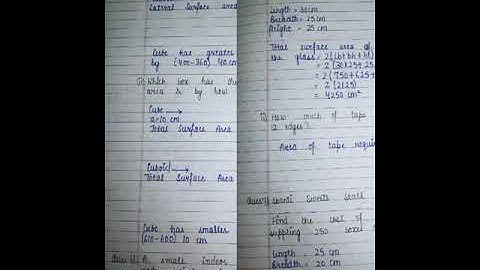 Lateral Surface area
Cube has greater
by (400-360) 40 cm
ii) Which box has the
area & by how
Cube →
a=10 cm
Total Surface Area
Cuboid →
Total Surface Area
Cube has smaller
(610-600) 10 cm
A small Indoor
Length = 30cm
Breadth = 25cm
Height = 25 cm
Total surface area of
the glass = 2(lb+bh+hl)
= 2(30×25+25
= 2(750+625+
= 2(2125)
= 4250 cm²
ii) How much of tape
12 edges?
Area of tape requir
Shanti Sweets
Find the cost of
supplying 250
Length = 25 cm
Breadth = 20 cm